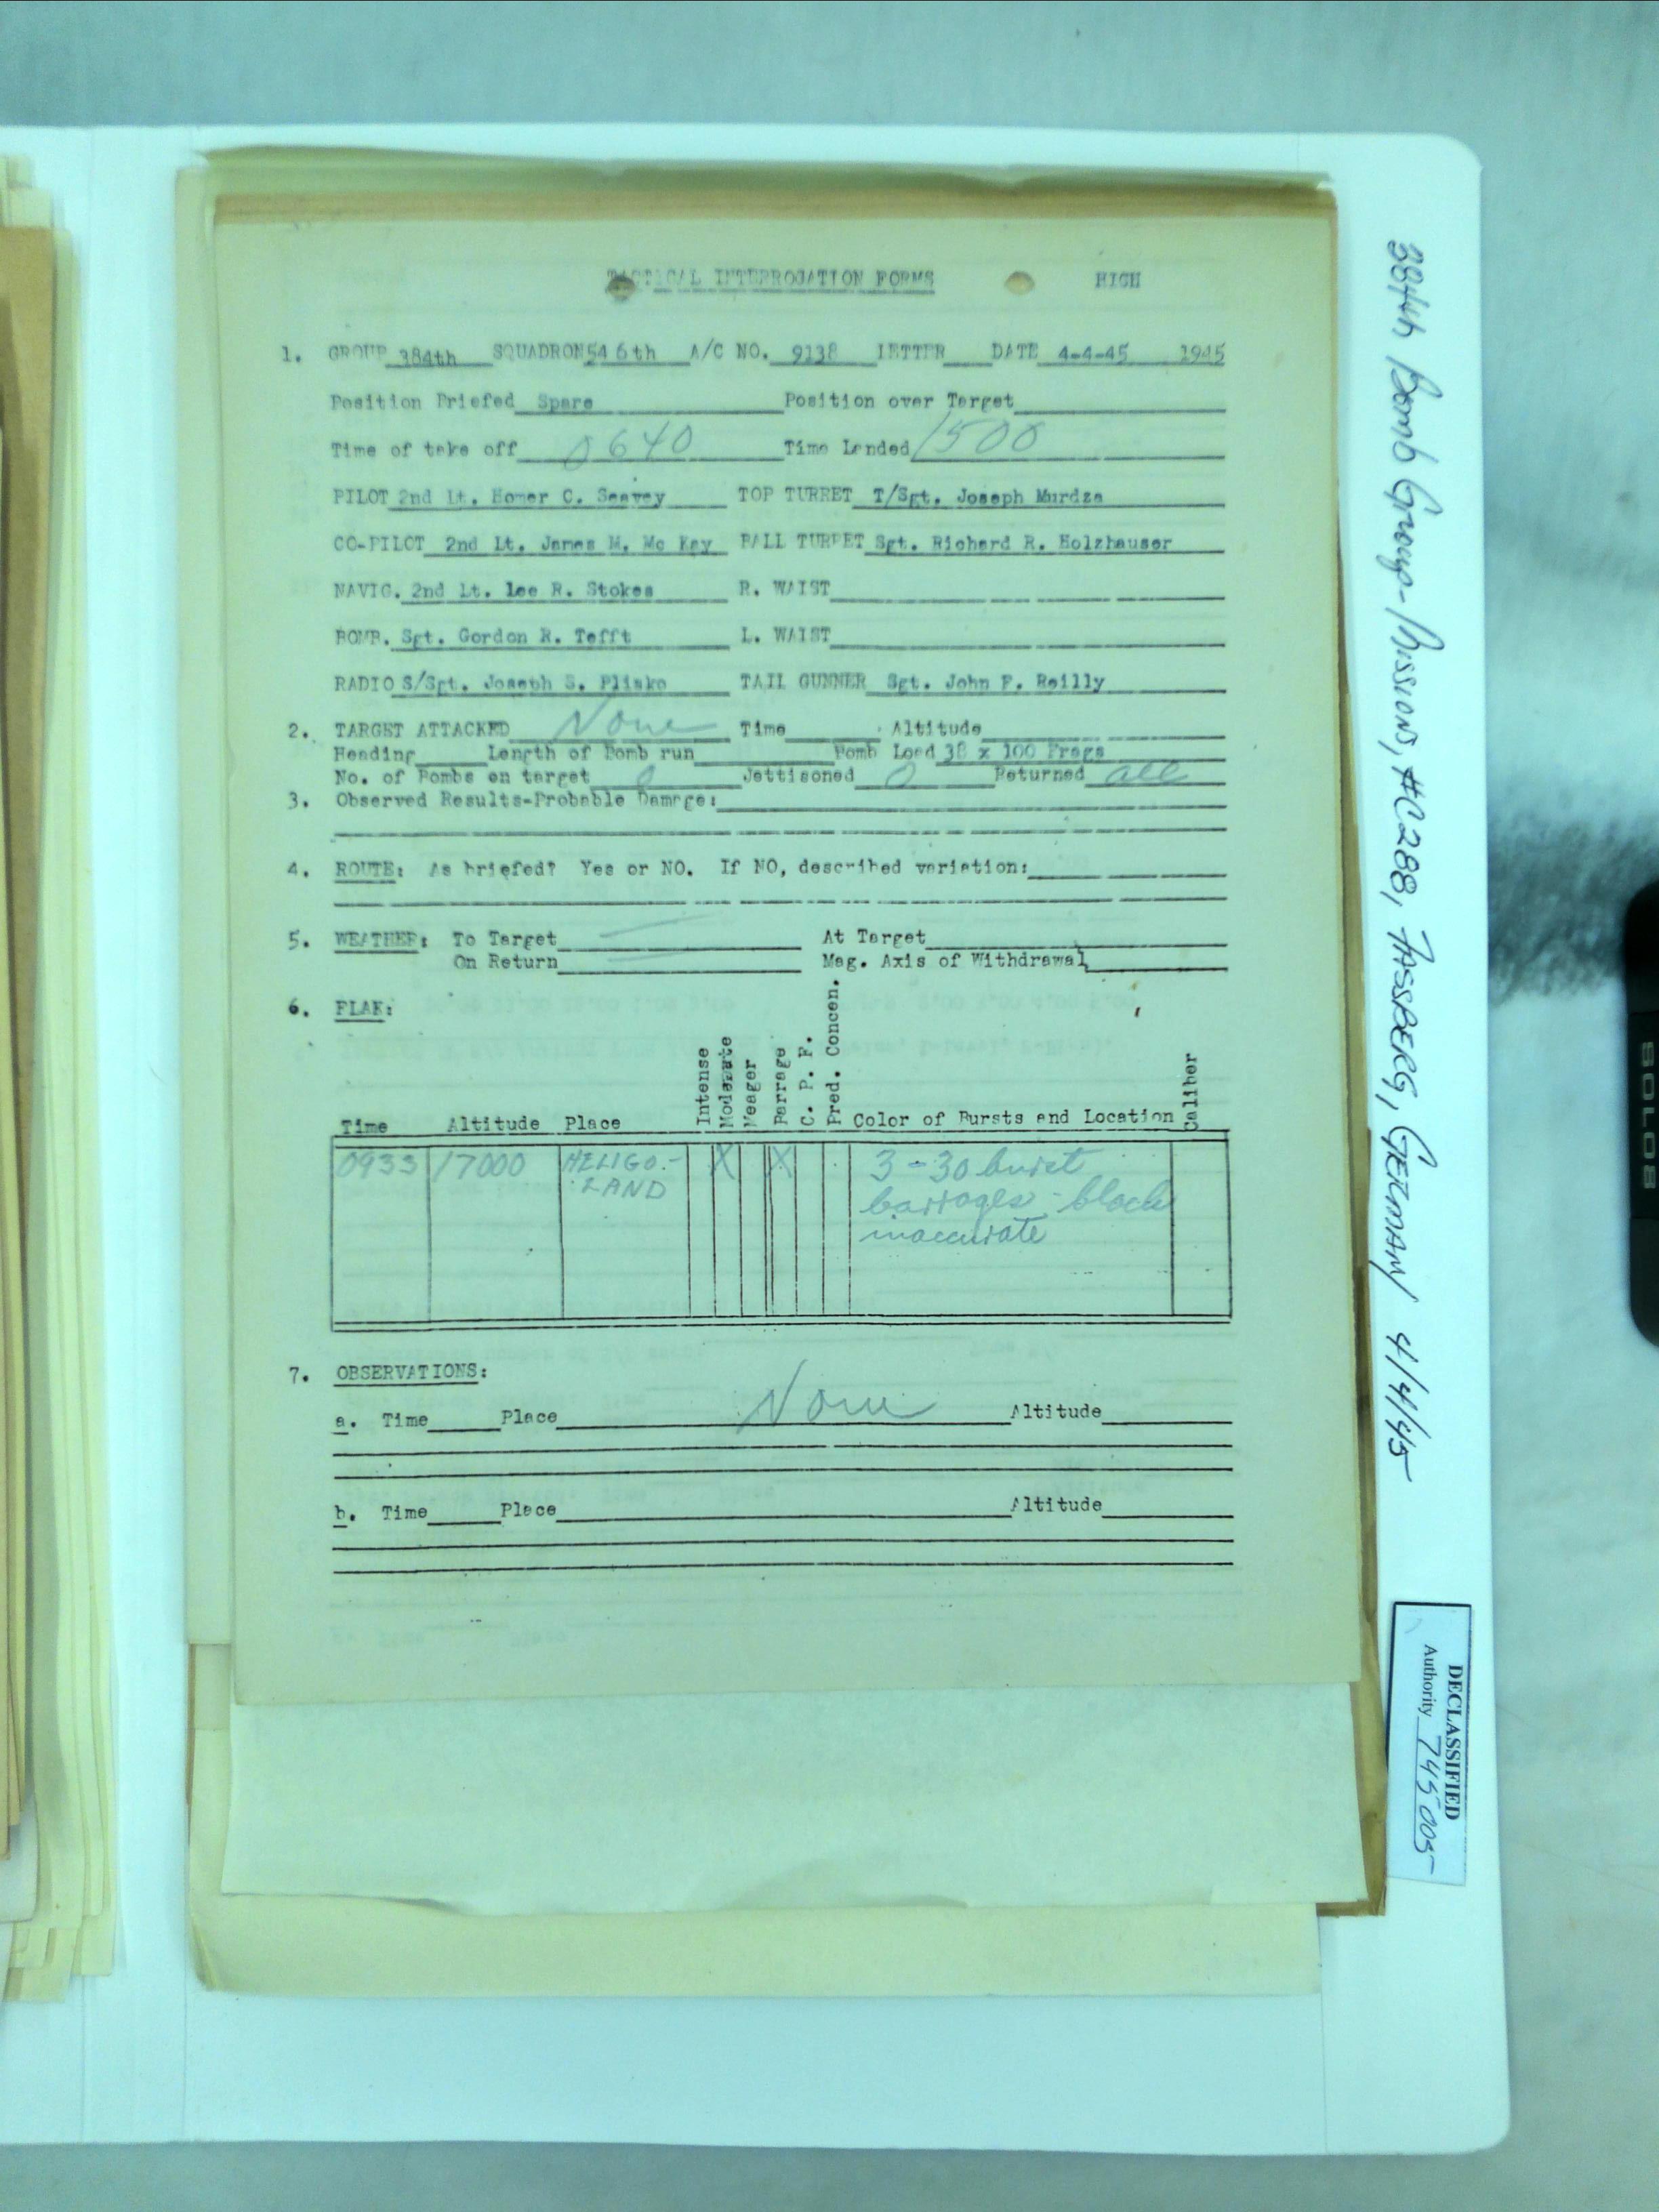 TACTICAL INTERROGATION FORMS HIGH
1. GROUP 384th SQUADRON 546th A/C NO. 9138 LETTER DATE 4-4-45 1945
Position Briefed Spare Position over Target
Time of take off 0640 Time Landed 1500
PILOT 2nd Lt. Homer C. Seavey TOP TURRET T/Sgt. Joseph Murdza
CO-PILOT 2nd Lt. James M. Mc Kay BALL TURRET Sgt. Richard R. Holzhauser
NAVIG. 2nd Lt. Lee R. Stokes R. WAIST
BOMB. Sgt. Gordon R. Tefft L. WAIST
RADIO S/Sgt. Joseph S. Plisko TAIL GUNNER Sgt. John F. Reilly
2. TARGET ATTACKED None Time Altitude
Heading Length of Bomb run Bomb Load 38 x 100 Frags
No. of Bombs on target 0 Jettisoned 0 Returned all
3. Observed Results-Probable Damage:
4. ROUTE: As briefed? Yes or NO. If NO, described variation:
5. WEATHER: To Target At Target
On Return Mag. Axis of Withdrawal
6. FLAK:
Time Altitude Place Intense Moderate Meager Barrage C. P. F. Pred. Concen. Color of Bursts and Location Caliber
0933 17000 HELIGO- X X 3-30 burst
LAND barrages - black
inaccurate
7. OBSERVATIONS:
a. Time Place None Altitude
b. Time Place Altitude
384th Bomb Group-Missions, #C288, FASSBERG, GERMANY 4/4/45
DECLASSIFIED
Authority 745005
SOLO8